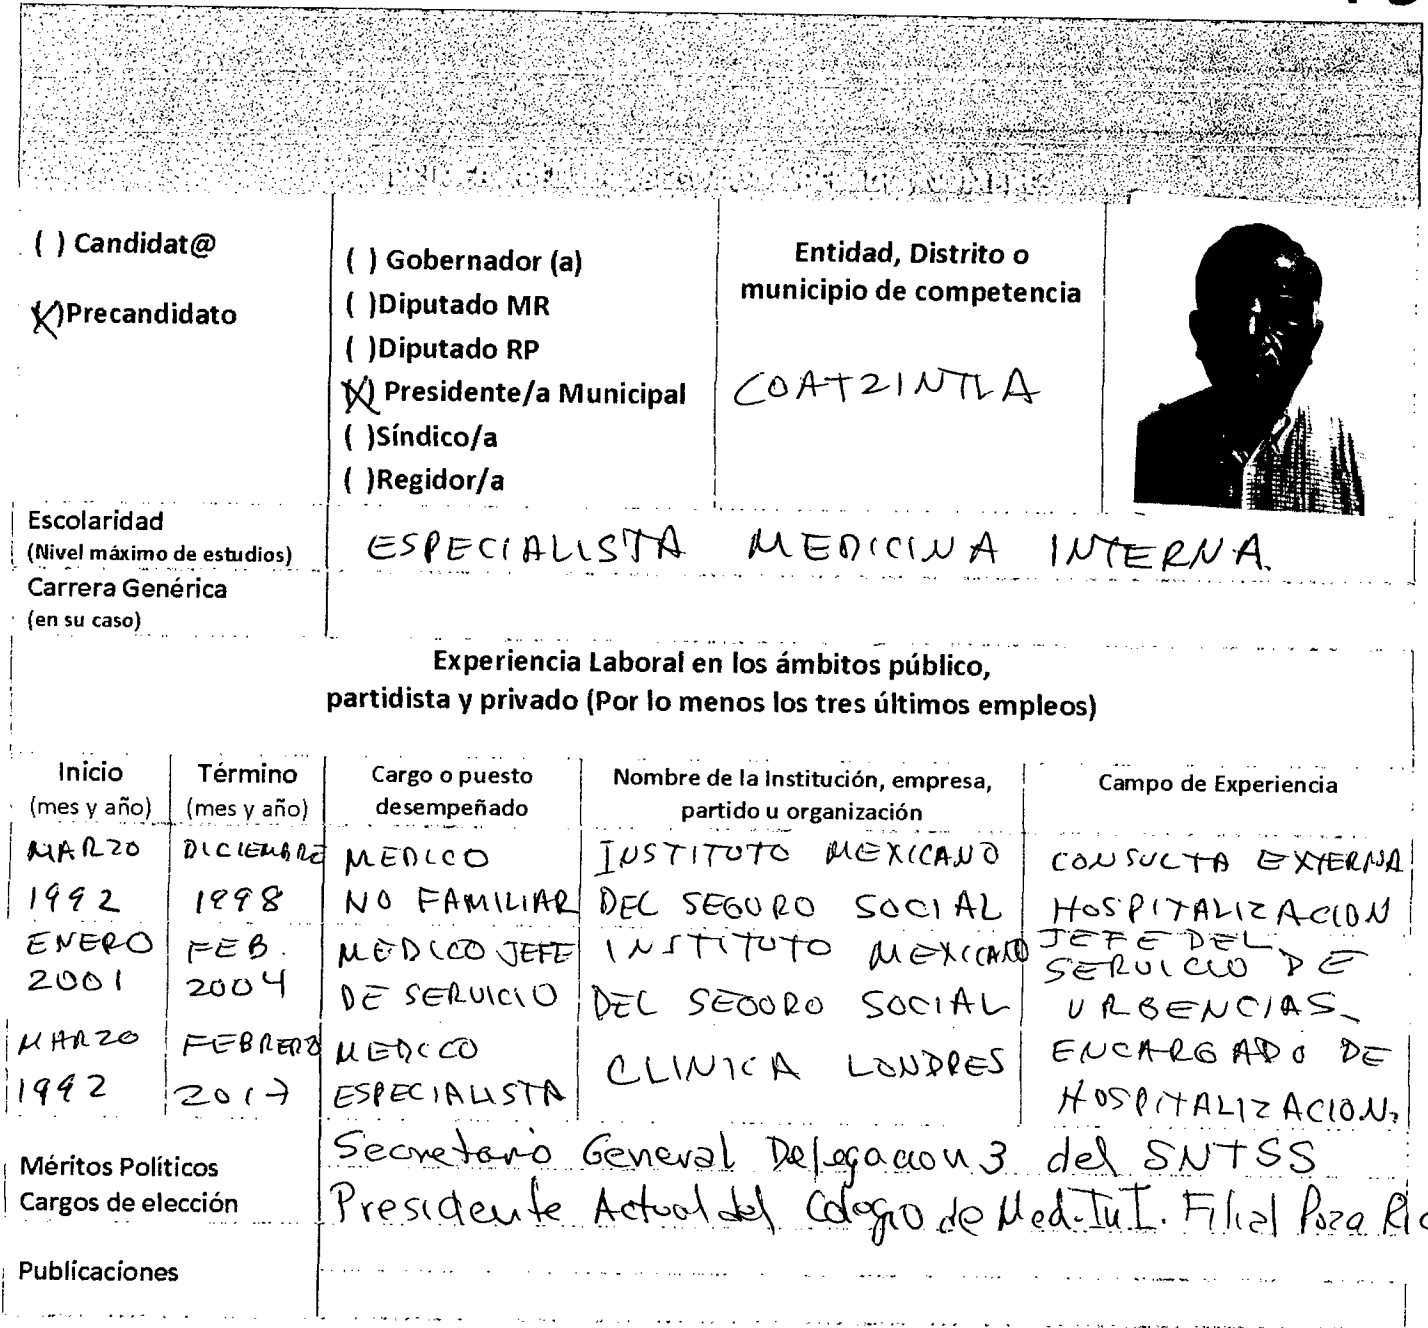 ( ) Candidat@
(X)Precandidato
( ) Gobernador (a)
( )Diputado MR
( )Diputado RP
(X) Presidente/a Municipal
( )Síndico/a
( )Regidor/a
Entidad, Distrito o
municipio de competencia
COATZINTLA
Escolaridad
(Nivel máximo de estudios)
ESPECIALISTA MEDICINA INTERNA.
Carrera Genérica
(en su caso)
Experiencia Laboral en los ámbitos público,
partidista y privado (Por lo menos los tres últimos empleos)
Inicio
(mes y año)
Término
(mes y año)
Cargo o puesto
desempeñado
Nombre de la Institución, empresa,
partido u organización
Campo de Experiencia
MARZO
1992
DICIEMBRE
1998
MEDICO
NO FAMILIAR
INSTITUTO MEXICANO
DEL SEGURO SOCIAL
CONSULTA EXTERNA
HOSPITALIZACION
ENERO
2001
FEB.
2004
MEDICO JEFE
DE SERVICIO
INSTITUTO MEXICANO
DEL SEGURO SOCIAL
JEFE DEL
SERVICIO DE
URGENCIAS
MARZO
1992
FEBRERO
2017
MEDICO
ESPECIALISTA
CLINICA LONDRES
ENCARGADO DE
HOSPITALIZACION.
Méritos Políticos
Cargos de elección
Secretario General Delegacion 3 del SNTSS
Presidente Actual del Colegio de Med. Int. Filial Poza Ric
Publicaciones